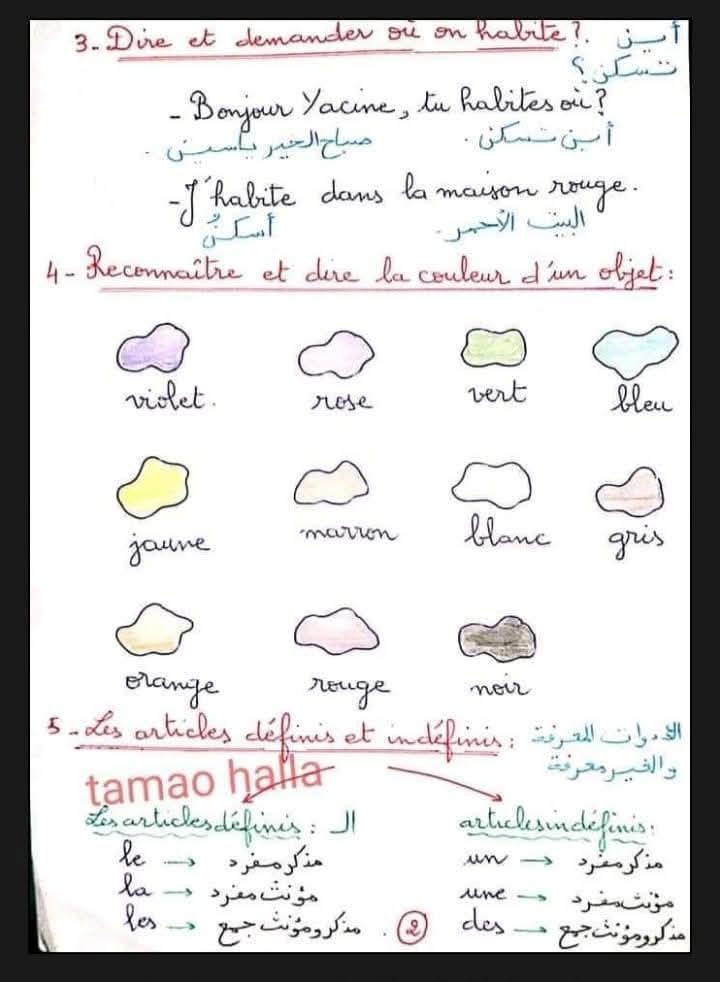 3- Dire et demander où on habite?. أين
تسكن؟
- Bonjour Yacine, tu habites où?
صباح الخير ياسين . أين تسكن .
- J'habite dans la maison rouge.
أسكنُ البيت الأحمر .
4- Reconnaître et dire la couleur d'un objet:
violet. rose vert bleu
jaune marron blanc gris
orange rouge noir
5- Les articles définis et indéfinis: الأدوات المعرفة
والغير معرفة
tamao halla
Les articles définis: الـ articles indéfinis:
le → مذكر مفرد un → مذكر مفرد
la → مؤنث مفرد une → مؤنث مفرد
les → مذكر ومؤنث جمع . 2 des → مذكر ومؤنث جمع